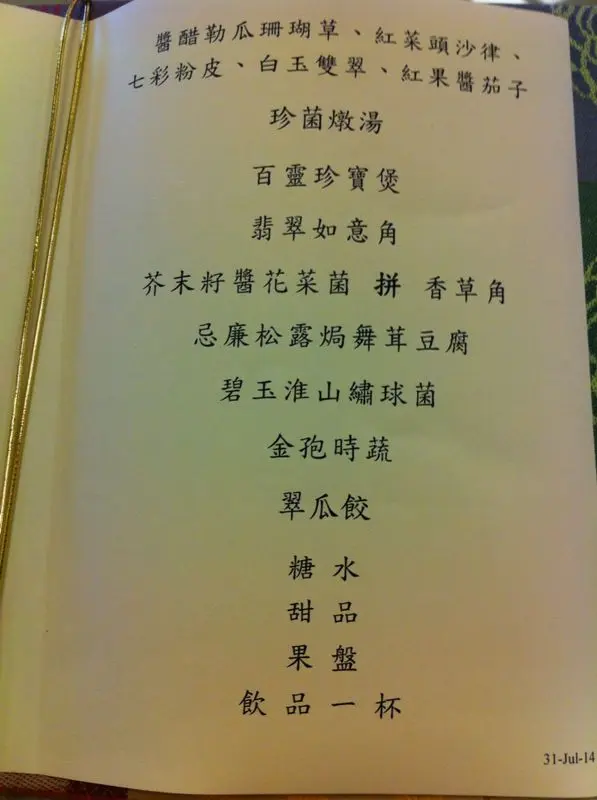 醬醋勒瓜珊瑚草、紅菜頭沙律、
七彩粉皮、白玉雙翠、紅果醬茄子
珍菌燉湯
百靈珍寶煲
翡翠如意角
芥末籽醬花菜菌 拼 香草角
忌廉松露焗舞茸豆腐
碧玉淮山繡球菌
金孢時蔬
翠瓜餃
糖水
甜品
果盤
飲品一杯
31-Jul-14